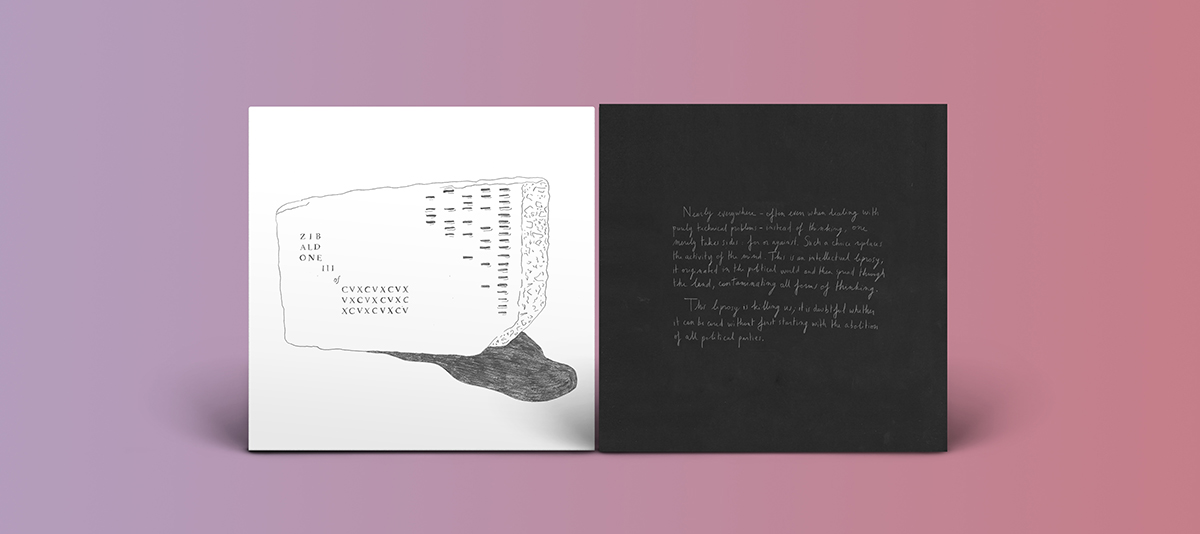 ZIB
ALD
ONE
III
of
CVXCVXCVX
VXCVXCVXC
XCVXCVXCV
Nearly everywhere - often even when dealing with
purely technical problems - instead of thinking, one
merely takes sides: for or against. Such a choice replaces
the activity of the mind. This is an intellectual leprosy;
it originated in the political world and then spread through
the land, contaminating all forms of thinking.
This leprosy is killing us; it is doubtful whether
it can be cured without first starting with the abolition
of all political parties.